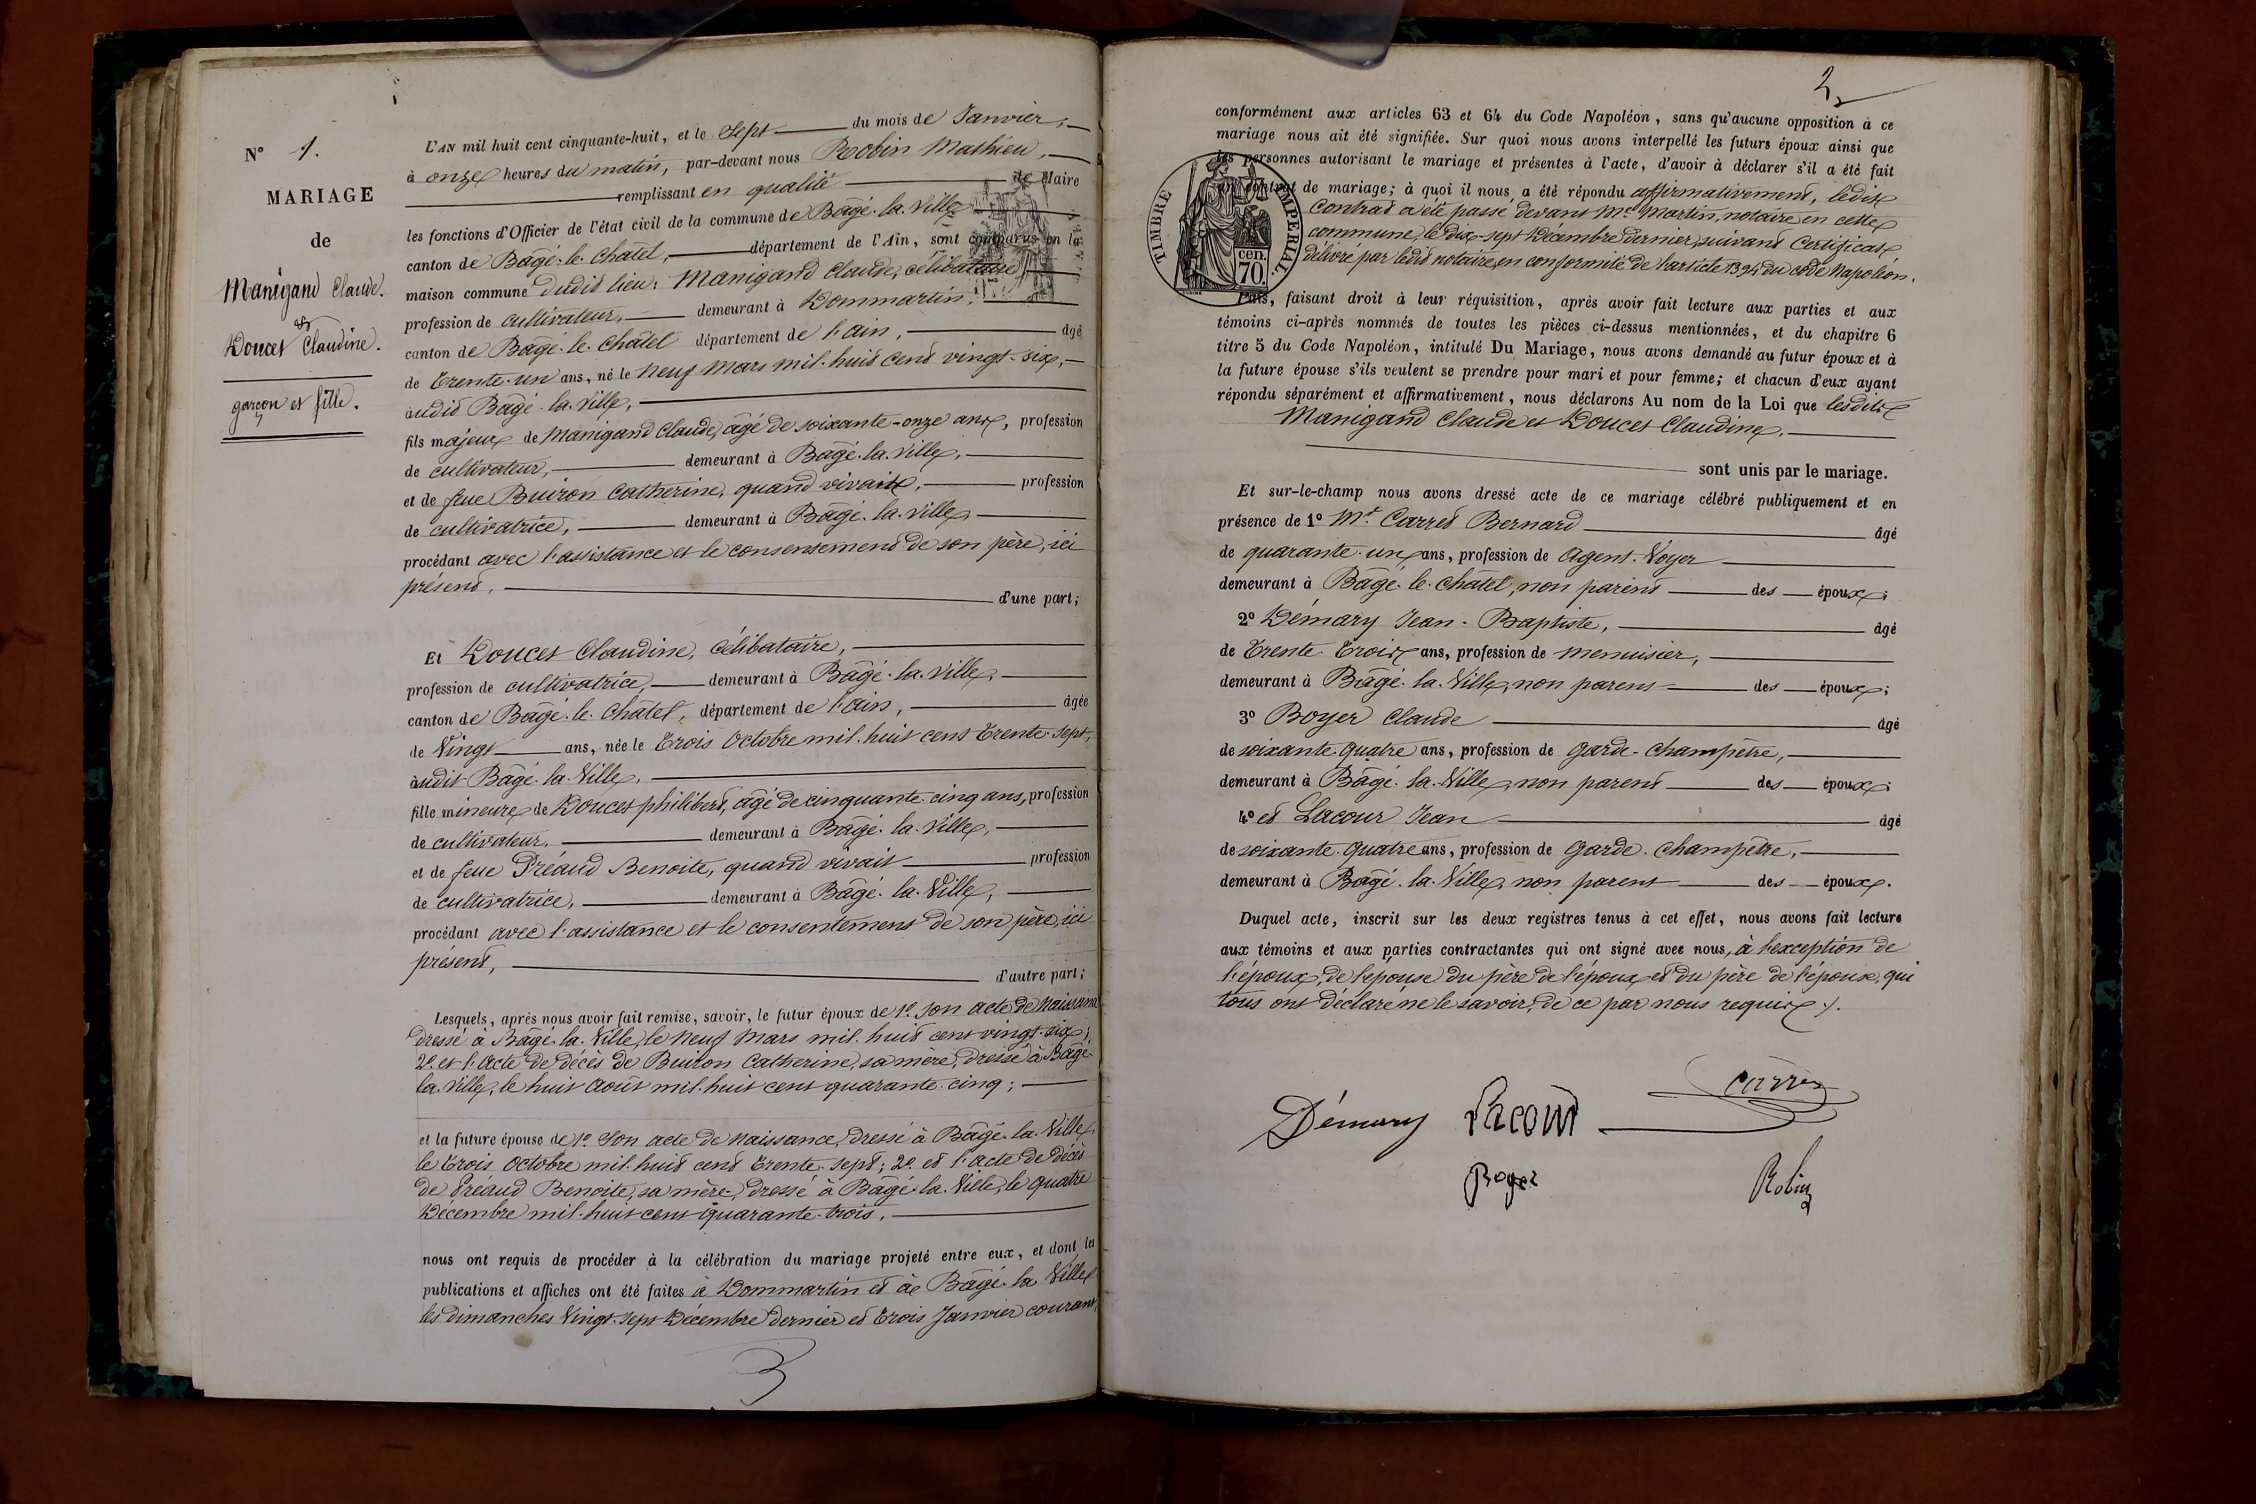 N° 1.
MARIAGE
de
Manigand Claude.
et
Doucet Claudine.
garçon et fille.
L'AN mil huit cent cinquante-huit, et le Sept du mois de Janvier,
à onze heures du matin, par-devant nous Robin Mathieu,
remplissant en qualité de Maire
les fonctions d'Officier de l'état civil de la commune de Bâgé-la-Ville
canton de Bâgé-le-Châtel, département de l'Ain, sont comparus en la
maison commune dudit lieu: Manigand Claude, célibataire,
profession de cultivateur, demeurant à Dommartin,
canton de Bâgé-le-Châtel département de l'ain, âgé
de trente-un ans, né le neuf mars mil-huit cent vingt-six,
audit Bâgé-la-Ville,
fils majeur de Manigand Claude, âgé de soixante-onze ans, profession
de cultivateur, demeurant à Bâgé-la-Ville,
et de feue Buiron Catherine, quand vivait, profession
de cultivatrice, demeurant à Bâgé-la-Ville
procédant avec l'assistance et le consentement de son père, ici
présent, d'une part;
Et Doucet Claudine, célibataire,
profession de cultivatrice, demeurant à Bâgé-la-Ville,
canton de Bâgé-le-Châtel, département de l'ain, âgée
de Vingt ans, née le trois octobre mil-huit cent trente-sept,
audit Bâgé-la-Ville,
fille mineure de Doucet philibert, âgé de cinquante-cinq ans, profession
de cultivateur, demeurant à Bâgé-la-Ville,
et de feue Préaud Benoite, quand vivait profession
de cultivatrice, demeurant à Bâgé-la-Ville,
procédant avec l'assistance et le consentement de son père, ici
présent, d'autre part;
Lesquels, après nous avoir fait remise, savoir, le futur époux de 1° son acte de naissance
dressé à Bâgé-la-Ville, le neuf mars mil-huit cent vingt-six;
2° et l'acte de décès de Buiron Catherine, sa mère, dressé à Bâgé-
la-Ville, le huit août mil-huit cent quarante-cinq;
et la future épouse de 1° son acte de naissance, dressé à Bâgé-la-Ville,
le trois octobre mil-huit cent trente-sept; 2° et l'acte de décès
de Préaud Benoite, sa mère, dressé à Bâgé-la-Ville, le quatre
Décembre mil-huit cent quarante-trois,
nous ont requis de procéder à la célébration du mariage projeté entre eux, et dont les
publications et affiches ont été faites à Dommartin et à Bâgé-la-Ville
les dimanches Vingt-sept Décembre dernier et trois Janvier courant,
3
2
conformément aux articles 63 et 64 du Code Napoléon, sans qu'aucune opposition à ce
mariage nous ait été signifiée. Sur quoi nous avons interpellé les futurs époux ainsi que
les personnes autorisant le mariage et présentes à l'acte, d'avoir à déclarer s'il a été fait
un contrat de mariage; à quoi il nous a été répondu affirmativement, ledit
Contrat a été passé devant Me Martin, notaire en cette
commune, le dix-sept Décembre dernier, suivant Certificat
délivré par ledit notaire, en conformité de l'article 1394 du code Napoléon.
TIMBRE IMPERIAL
cen.
70.
Puis, faisant droit à leur réquisition, après avoir fait lecture aux parties et aux
témoins ci-après nommés de toutes les pièces ci-dessus mentionnées, et du chapitre 6
titre 5 du Code Napoléon, intitulé Du Mariage, nous avons demandé au futur époux et à
la future épouse s'ils veulent se prendre pour mari et pour femme; et chacun d'eux ayant
répondu séparément et affirmativement, nous déclarons Au nom de la Loi que lesdits
Manigand Claude et Doucet Claudine,
sont unis par le mariage.
Et sur-le-champ nous avons dressé acte de ce mariage célébré publiquement et en
présence de 1° Mr. Carret Bernard âgé
de quarante-un ans, profession de Agent-Voyer
demeurant à Bâgé-le-Châtel, non parent des époux;
2° Démary Jean-Baptiste, âgé
de trente-trois ans, profession de menuisier,
demeurant à Bâgé-la-Ville, non parent des époux;
3° Boyer Claude âgé
de soixante-quatre ans, profession de garde-champêtre,
demeurant à Bâgé-la-Ville, non parent des époux;
4° et Lacour Jean âgé
de soixante-quatre ans, profession de garde-champêtre,
demeurant à Bâgé-la-Ville, non parent des époux.
Duquel acte, inscrit sur les deux registres tenus à cet effet, nous avons fait lecture
aux témoins et aux parties contractantes qui ont signé avec nous, à l'exception de
l'époux, de l'épouse du père de l'époux et du père de l'épouse, qui
tous ont déclaré ne le savoir, de ce par nous requis.
Démary Lacour Carret
Boyer Robin